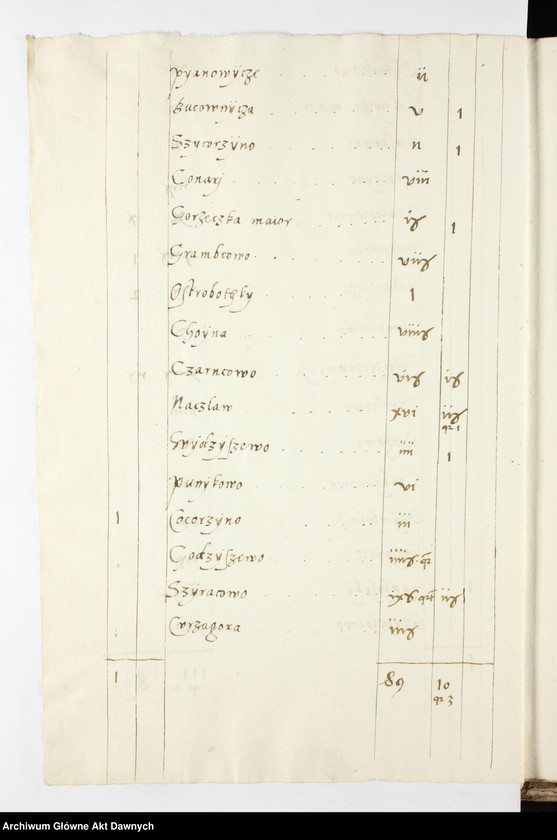 Pyanowycze . . . . ii
Bucownycza . . . . v 1
Szycorzyno . . . . ii 1
Conarj . . . . viii
Gorzeczka maior . . . . is 1
Grambcowo . . . . viis
Ostrobothly . . . . 1
Choyna . . . . viiis
Czarncowo . . . . vis is
Naczlaw . . . . xvi iis
qr 1
Wydzyszewo . . . . iiii 1
Punykowo . . . . vi
1 Cocorzyno . . . . iii
Godzyszewo . . . . iiiis qr
Szyracowo . . . . ixs qr iis
Crzagora iiis
1 89 10
qr 3
Archiwum Główne Akt Dawnych